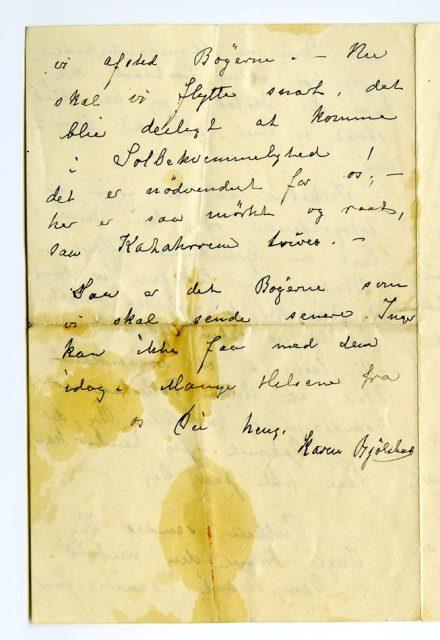 vi afsted Bøgerne. — Nu
skal vi flytte snart, det
blir deiligt at komme
i Solbekvemmelighed!
det er nødvendigt for os; —
her er saa mørkt og raat,
saa trives. —
Saa er det Bøgerne som
vi skal sende senere. Inger
kan ikke faa med dem
idag. Mange Helsene fra
os Din heng.
Karen